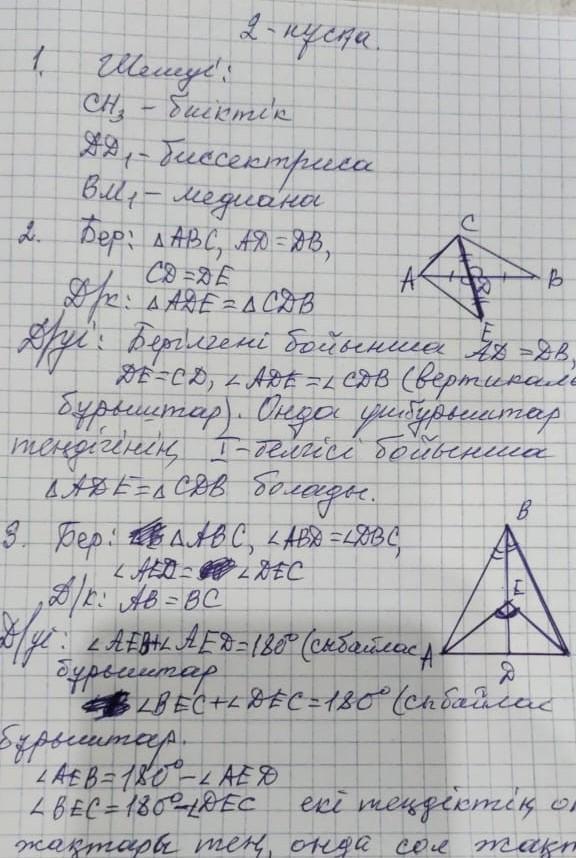 2-нұсқа.
1. Шешуі:
CH₃ – биіктік
DD₁ – биссектриса
BM₁ – медиана
2. Бер: △ABC, AD=DB,
CD=DE
Д/к: △ADE=△CDB
C
A D B
E
Д/уі: Берілгені бойынша AD=DB,
DE=CD, ∠ADE=∠CDB (вертикаль
бұрыштар). Онда үшбұрыштар
теңдігінің I-белгісі бойынша
△ADE=△CDB болады.
3. Бер: △ABC, ∠ABD=∠DBC,
∠AED= ∠DEC
Д/к: AB=BC
B
E
A D
Д/уі: ∠AEB+∠AED=180° (сыбайлас
бұрыштар
∠BEC+∠DEC=180° (сыбайлас
бұрыштар.
∠AEB=180°-∠AED
∠BEC=180°-∠DEC екі теңдіктің
жақтары тең, онда сол